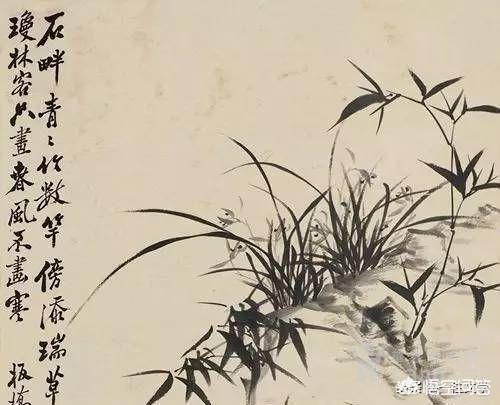 石畔青〻竹數竿傍添瑞草
瓊林客只畫春風不畫寒 板橋